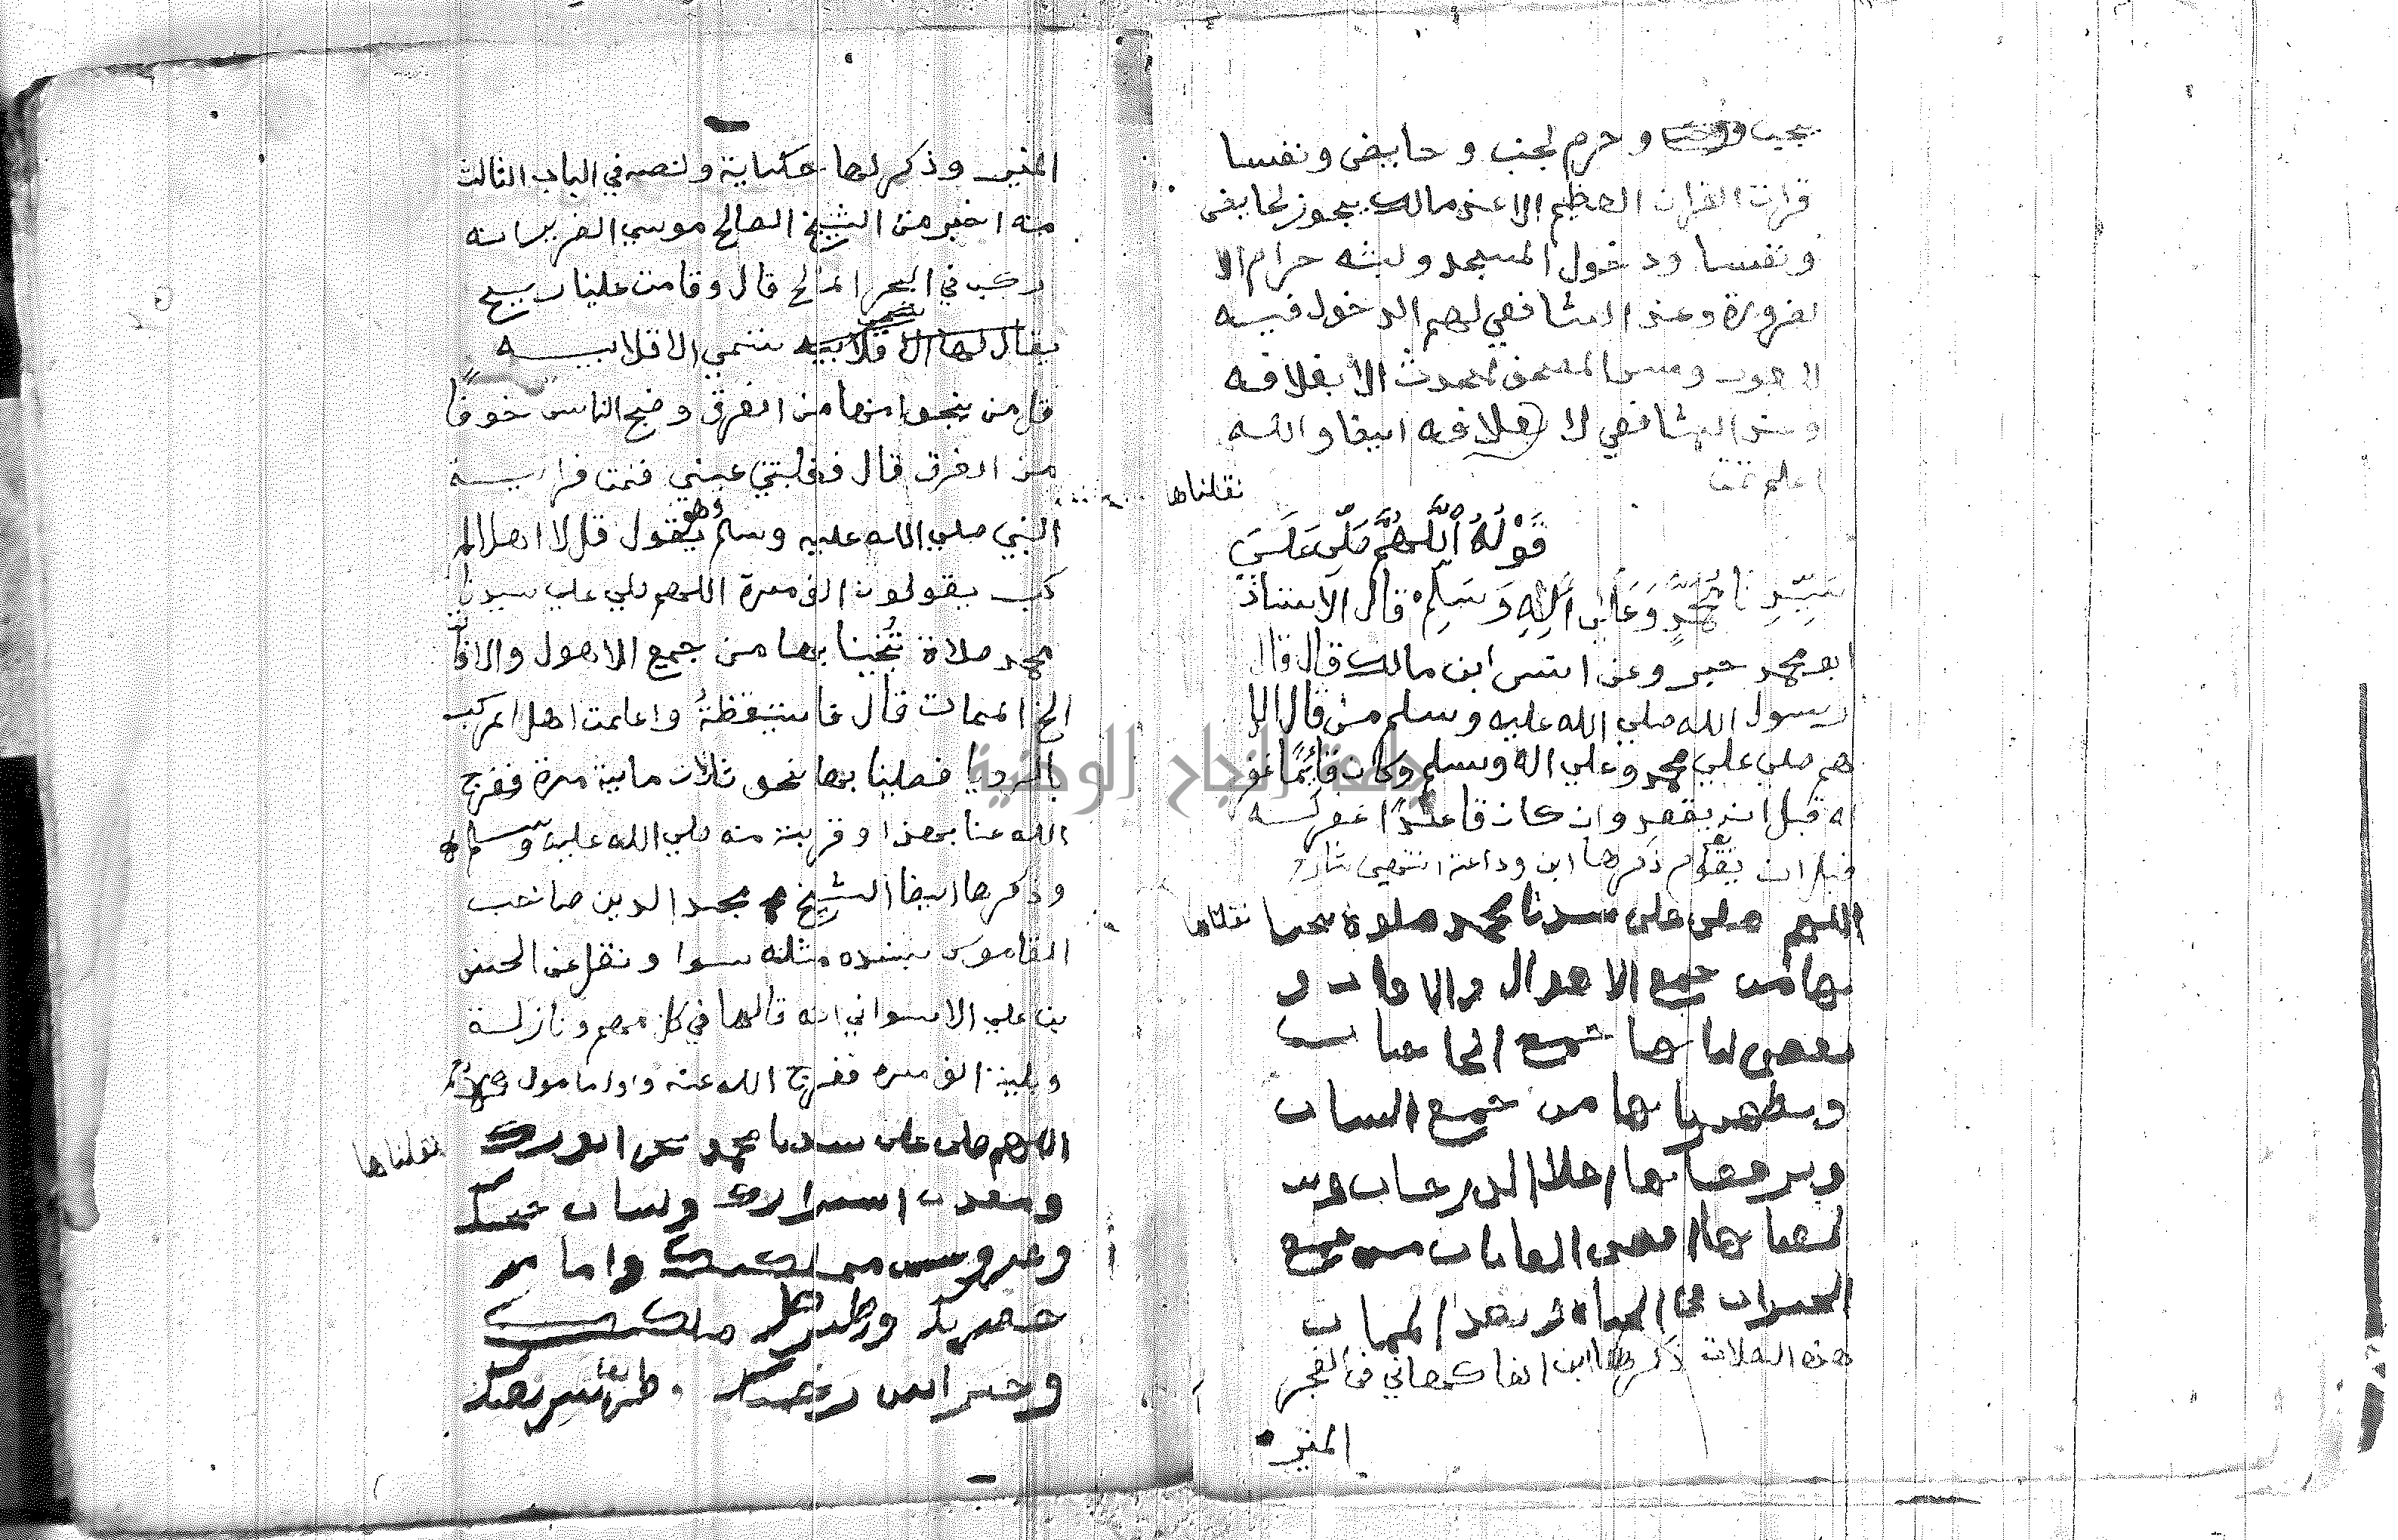 وحرم لجنب و حايض ونفسا
قرات القران العظيم الا عند مالك يجوز لحايض
ونفسا ودخول المسجد ولبثه حرام الا
لضرورة وعند الشافعي لهم الدخول فيه
ومس المصحف لمحدث الا بغلافه
وعند الشافعي لا بغلافه ايضا والله
اعلم تمت
نقلناها
قَوْلُهُ اَللَّهُمَّ صَلِّي عَلَىَ
سَيِّدِنَا مُحَمَّدٍ وَعَلَىَ اَلِهِ وَسَلِمْ قال الاستاذ
ابو محمد جبر وعن انس ابن مالك قال قال
رسول الله صلي الله عليه وسلم من قال الل
هم صلي علي محمد وعلي اله وسلم وكان قائمًا غفر
له قبل ان يقعد وان كان قاعدًا غفر له
قبل ان يقوم ذكرها ابن وداعة انتهي
اللهم صلى على سدنا محمد صلوة سحىا
نقلناها
ىها من حمىع الاهوال والافات و
ىعصى لىا ىها حمىع الحاحات
وىطهرىا ىها من حمىع السىات
وىرفعىا ىها اعلا الدرحات وىى
لعىا ىها اقصى الغاىات من حمىع
الحىرات فى الحىاة وىعد الممات
هذه الصلاة ذكرها ابن الفاكهاني في الفجر
المنير
المنير وذكر لها حكاية ونصه في الباب الثالث
منه اخبرني الشيخ الصالح موسي الضرير انه
ركب في البحر المالح قال وقامت علينا ريح
يقال لها الاقلابيه تسمي الاقلابيه
قل من ينجوا منها من الغرق وضج الناس خوفًا
من الغرق قال فغلبتني عيني فنمت فرايت
النبي صلي الله عليه وسلم وهو يقول قل لاهل الم
ركب يقولون الف مرة اللهم صلي علي سيدنا
محمد صلاة تُنجينا بها من جميع الاهول والافا
الخ الممات قال فاستيقظةُ واعلمت اهل المركب
بالرويا فصلينا بها نحو ثلاث ماية مرة ففرج
الله عنا بهذا وقربة منه صلي الله عليه وسلم
وذكرها ايضا الشيخ مجد الدين صاحب
القاموس بسنده مثله سوا ونقل عن الحسن
بن علي الاسواني انه قالها في كل مهم ونازلة
وبلية الف مرة ففرج الله عنه وادا مامول
اللهم صلى على سدىا محمد ىحر انوارك
نقلناها
ومعدن اسرارك ولسان حجتك
وعروس مملكتك وامام
حضرتك وطراز ملكك
وخزاين رحمتك وطريق شريعتك
جامعة النجاح الوطنية